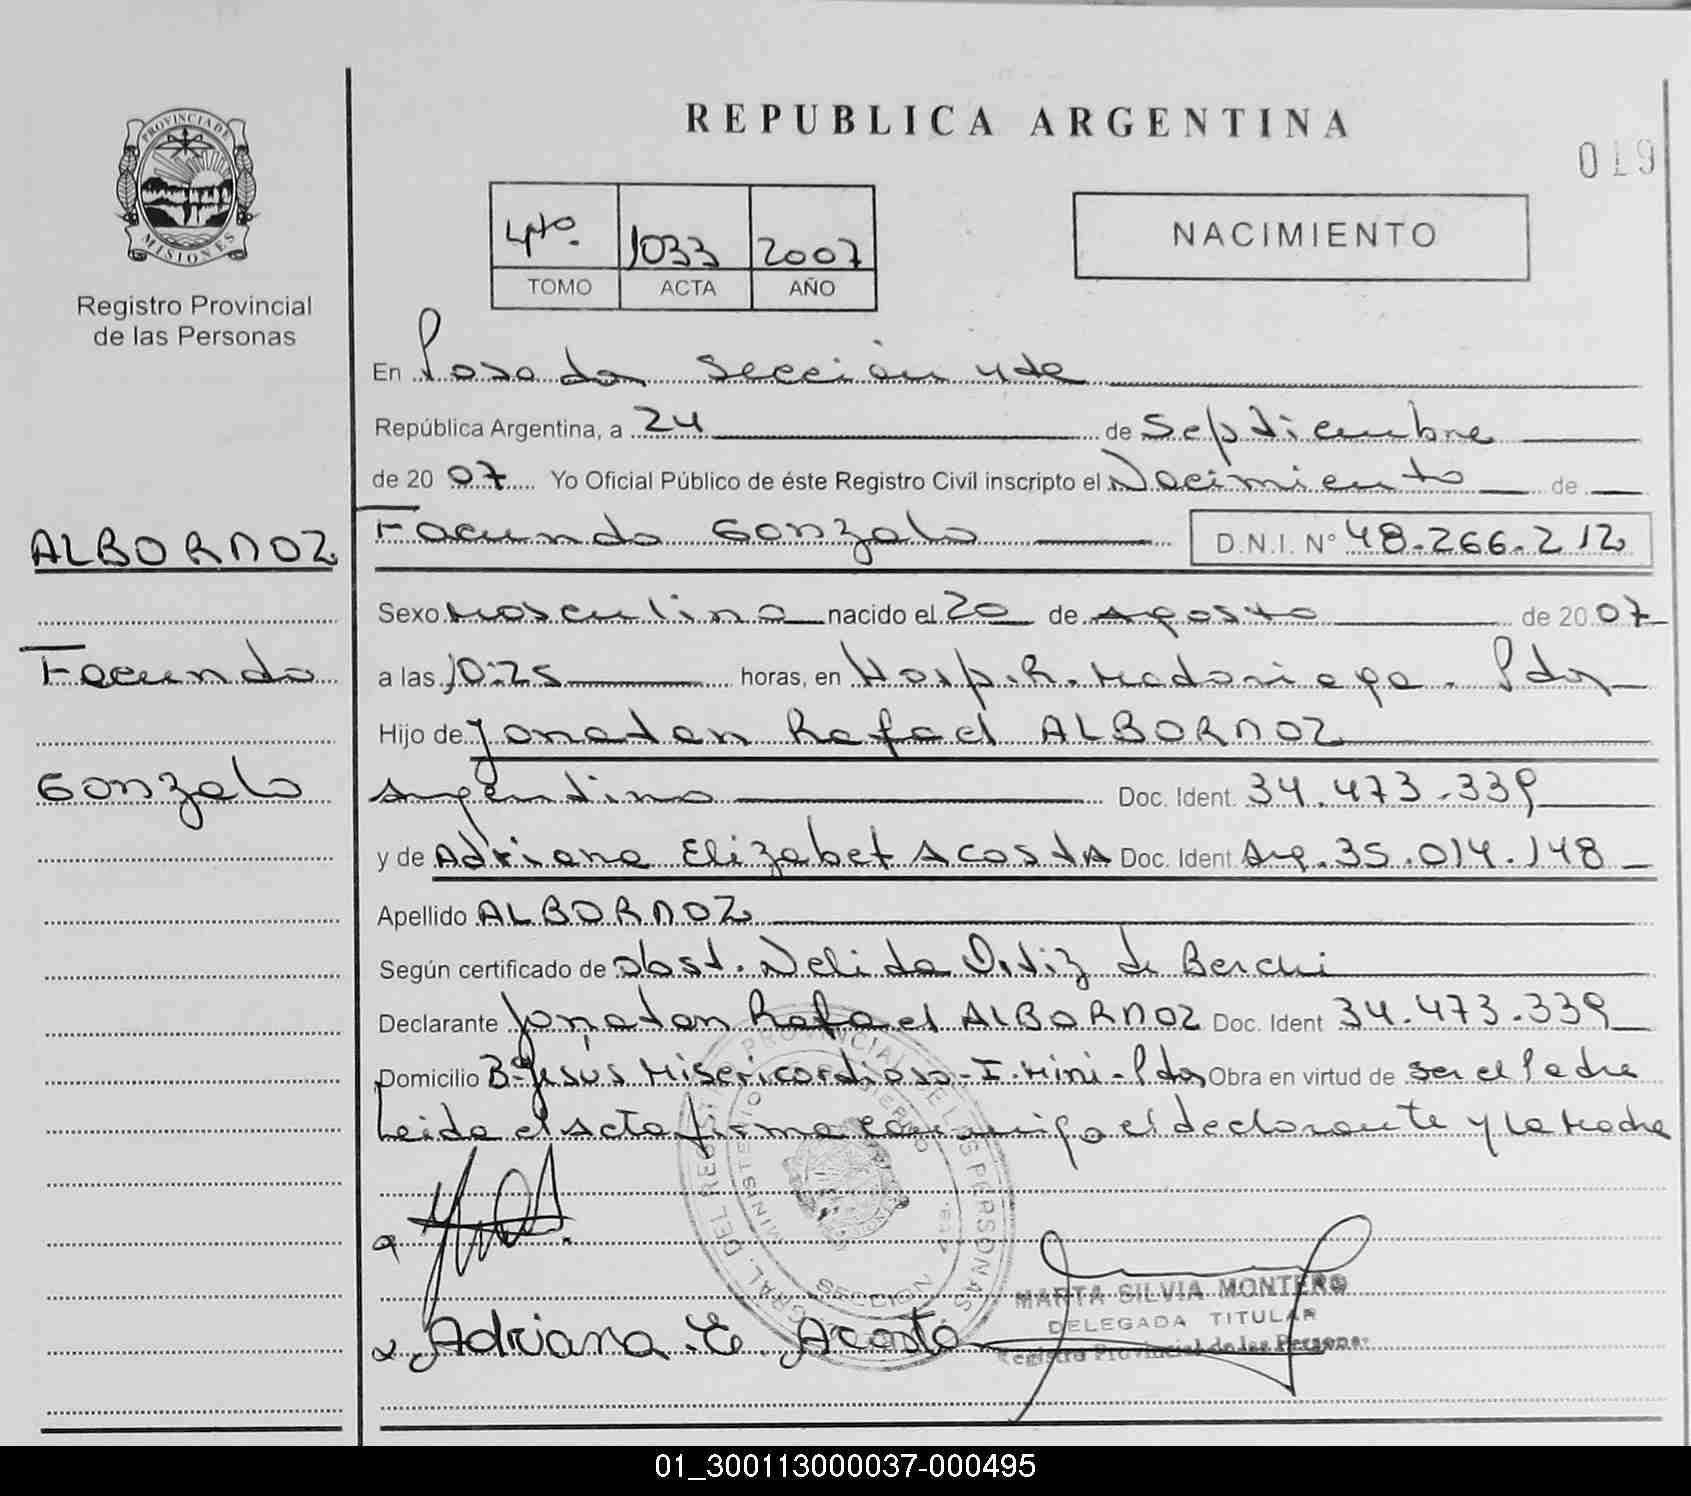 REPUBLICA ARGENTINA
019
PROVINCIA DE
MISIONES
Registro Provincial
de las Personas
4to. 1033 2007
TOMO ACTA AÑO
NACIMIENTO
En Posadas Sección 4ta
República Argentina, a 24 de Septiembre
de 2007 Yo Oficial Público de éste Registro Civil inscripto el Nacimiento de
ALBORNOZ
Facundo Gonzalo D.N.I. N° 48.266.212
Sexo Masculino nacido el 20 de Agosto de 2007
Facundo
a las 10:25 horas, en Hosp. R. Madariaga. Pdas
Hijo de Jonatan Rafael ALBORNOZ
Gonzalo
Argentino Doc. Ident. 34.473.339
y de Adriana Elizabet ACOSTA Doc. Ident Arg. 35.014.148
Apellido ALBORNOZ
Según certificado de obst. Nelida Ortiz de Berchi
Declarante Jonatan Rafael ALBORNOZ Doc. Ident 34.473.339
Domicilio B° Jesús Misericordioso - I. Miní - Pdas Obra en virtud de ser el Padre
Leida el Acta firma conmigo el declarante y la Madre
MARTA SILVIA MONTERO
DELEGADA TITULAR
Registro Provincial de las Personas
Adriana E. Acosta
01_300113000037-000495